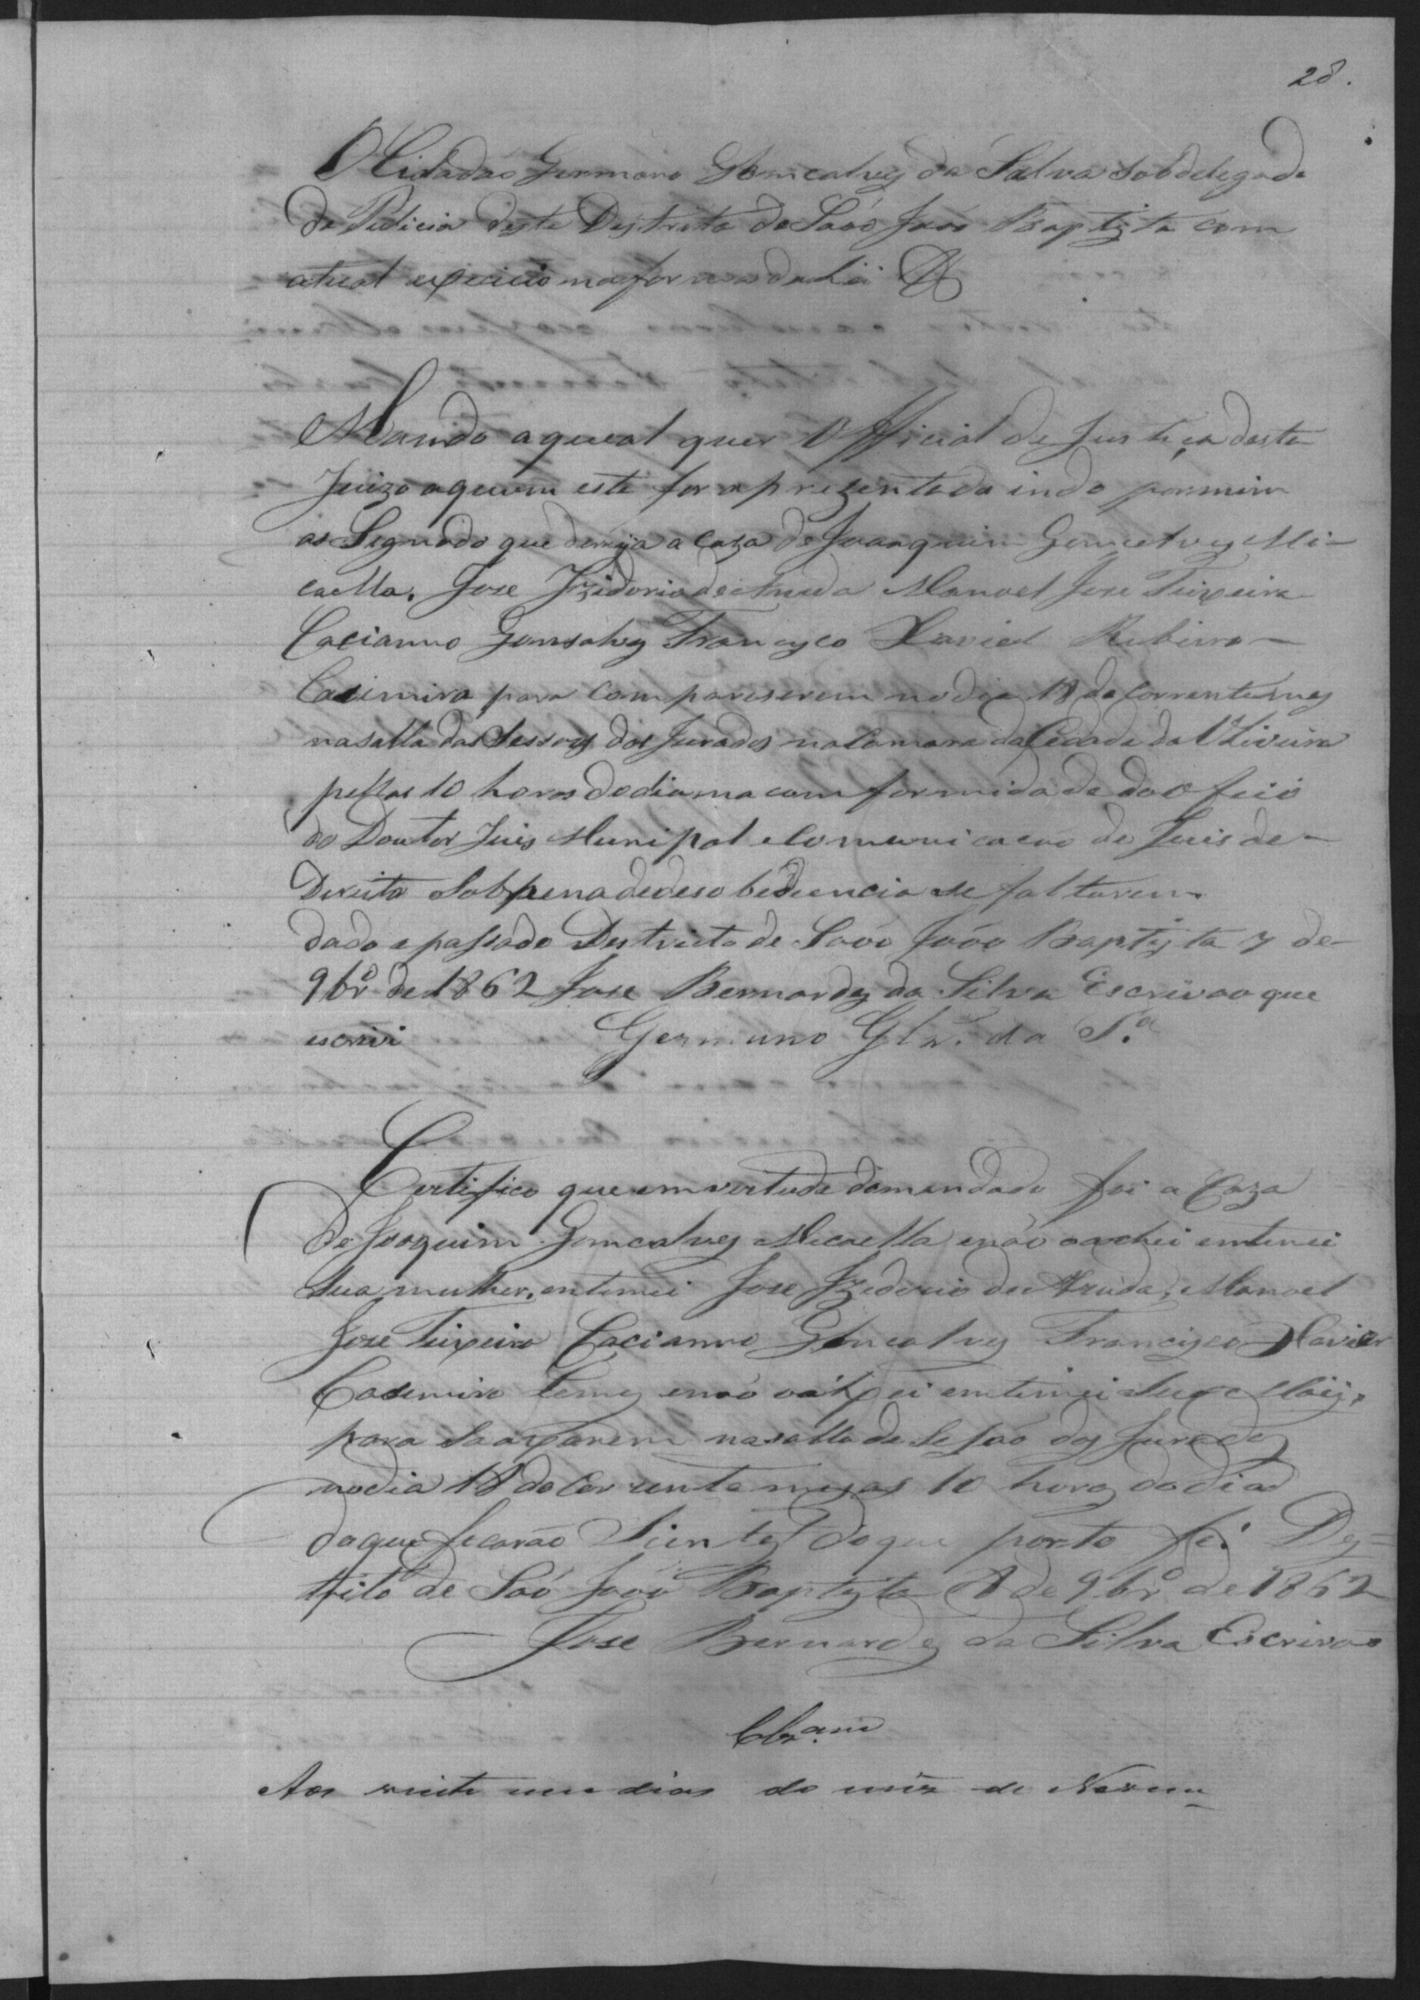 28.
O Cidadão Germano Gomcalves da Salva Sobdelegado
da Pulicia deste Destrito de Saõo João Baptista com
atual exicicio na forma da Lei &
Mando a qual quer Official de Justiça deste
Juizo a quem este for aprezentado indo por mim
as Signado que derija a Caza de Joaquim Goncalves Mi-
caella. Joze Izidorio de Aruda Manoel Joze Teixeira
Cacianno Gonsalves Francisco Xaviel Rubirro-
Casimiro para compareserem no dia 18 do Corrente mes
na salla das Sessoys dos Jurados na Camara da Cidade da Oliveira
pellas 10 horas do dia na comformidade do Oficio
do Doutor Juis Munipal e Comunicacão do Juis de-
Direito Sob pena de desobediencia se faltarem.
dado e passado Destricto de Saõo João Baptista 7 de-
9br.º de 1862 Joze Bernardes da Silva Escrivão que
escrivi Germano Glz. da S.ª
Certifico que em vertude do mandado fui a Caza
de Joaquim Goncalves Micaella e não o achei entimei
sua mulher, entimei Joze Izedorio de Aruda, Manoel
Joze Teixeira Cacianno Goncalves Francisco Xavier
Casemiro Lemes e não entimei Sua Maii,
para na salla da Sesão dos Jurados
no dia 18 do Corrente mes as 10 horas do dia
do que ficarão Sientes do que porto fé. Des=
trito de Saõ João Baptista 8 de 9br.º de 1862
Joze Bernardes da Silva Escrivão
Clz.am
Aos vinte um dias do mez de Novem-